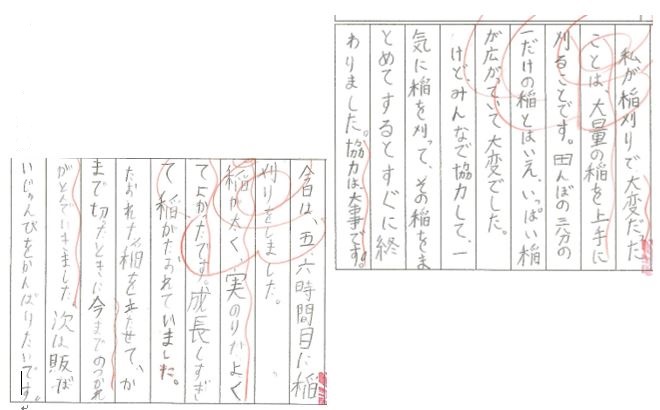 私が稲刈りで大変だった
ことは、大量の稲を上手に
刈ることです。田んぼの三分の
一だけの稲とはいえ、いっぱい稲
が広がっていて大変でした。
けど、みんなで協力して、一
気に稲を刈って、その稲をま
とめてするとすぐに終
わりました。協力は大事です。
今日は、五、六時間目に稲
刈りをしました。
稲がかたく、実のりがよく
てよかったです。成長しすぎ
て稲がたおれていました。
たおれた稲を立たせて、か
まで切ったときに今までのつかれ
がとんでいきました。次は販ば
いじゅんびをがんばりたいです。